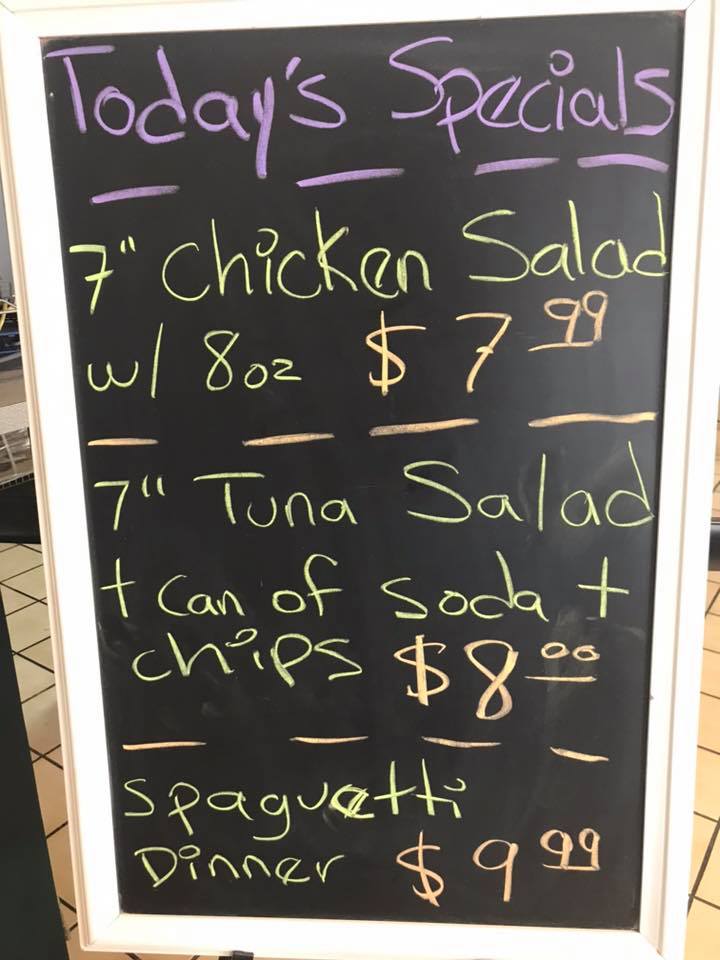 Today's Specials
7" Chicken Salad
w/ 8oz $ 7 99
7" Tuna Salad
+ Can of Soda +
chips $ 8 00
Spaguetti
Dinner $ 9 99